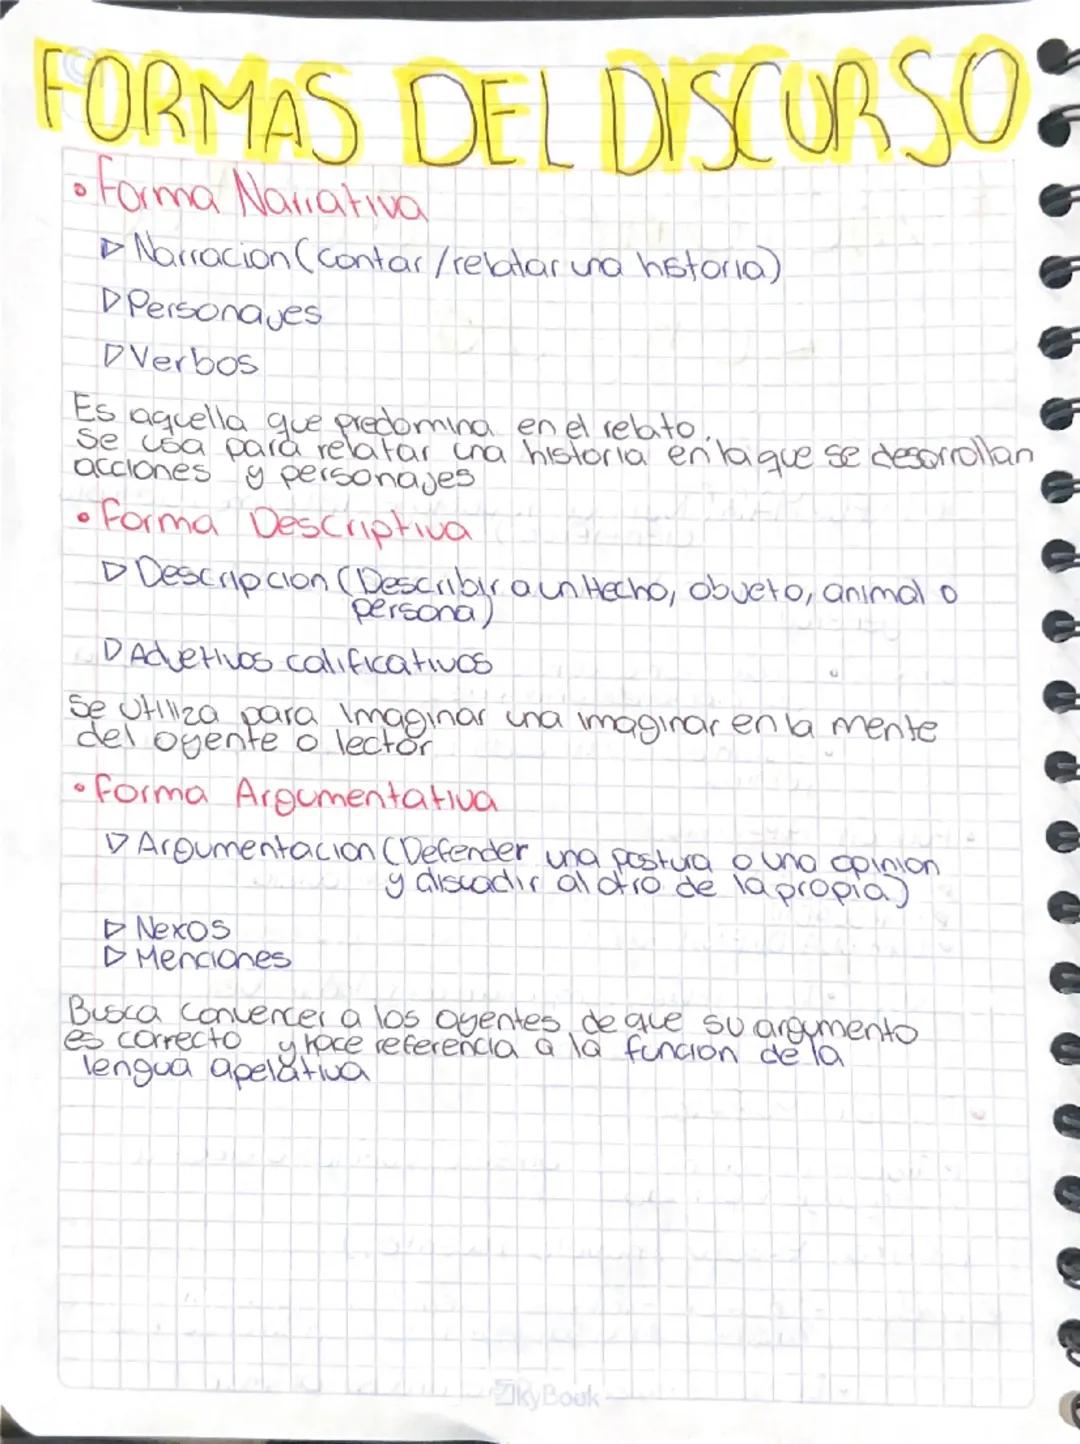 FORMAS DEL DISCURSO
• Forma Narrativa
▷ Narracion (contar/relatar una historia)
▷ Personajes
▷ Verbos
Es aquella que predomina en el relato.
Se usa para relatar una historia en la que se desarrollan
acciones y personajes
• Forma Descriptiva
▷ Descripcion (Describir a un Hecho, objeto, animal o
persona)
▷ Adjetivos calificativos
Se utiliza para Imaginar una imaginar en la mente
del oyente o lector
• Forma Argumentativa
▷ Argumentacion (Defender una postura o una opinion
y discadir al otro de la propia)
▷ Nexos
▷ Menciones
Busca convencer a los oyentes de que su argumento
es correcto y hace referencia a la funcion de la
lengua apelativa
SkyBook